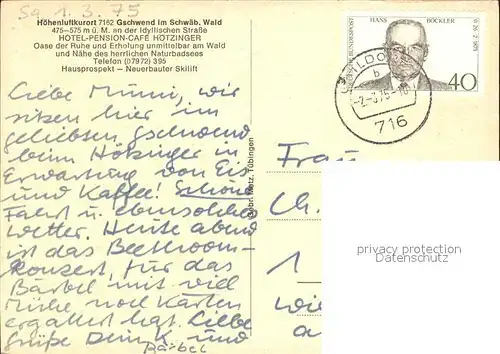 Sa 1. 3. 75
Höhenluftkurort 7162 Gschwend im Schwäb. Wald
475-575 m ü. M. an der Idyllischen Straße
HOTEL-PENSION-CAFÉ HÖTZINGER
Oase der Ruhe und Erholung unmittelbar am Wald
und Nähe des herrlichen Naturbadsees
Telefon (07972) 395
Hausprospekt - Neuerbauter Skilift
HANS BÖCKLER
DEUTSCHE BUNDESPOST
40
b
-2-3.75-
716
Liebe Mumi, wir
sitzen hier im
geliebten Gschwend
beim Hötzinger in
Erwartung von Eis
und Kaffee! Schöne
Fahrt u. ebensolches
Wetter. Heute abend
ist das Beethoven-
konzert, für das
Bärbel mit viel
Mühe noch Karten
ergattert hat. Liebe
Grüße Dein K und
Bärbel
Gebr. Metz, Tübingen
Frau
Ch.
1
Wie
a
privacy protection
Datenschutz